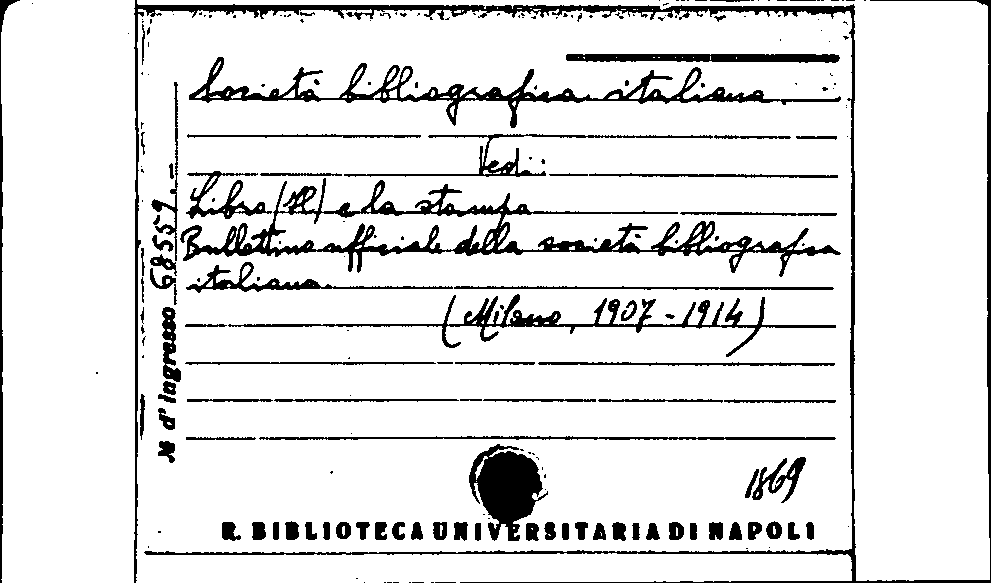 Società bibliografica italiana.
Vedi:
Libro (Il) e la stampa
Bullettino ufficiale della società bibliografica
italiana.
(Milano, 1907-1914)
No d'ingresso 68559.-
1869
R. BIBLIOTECA UNIVERSITARIA DI NAPOLI